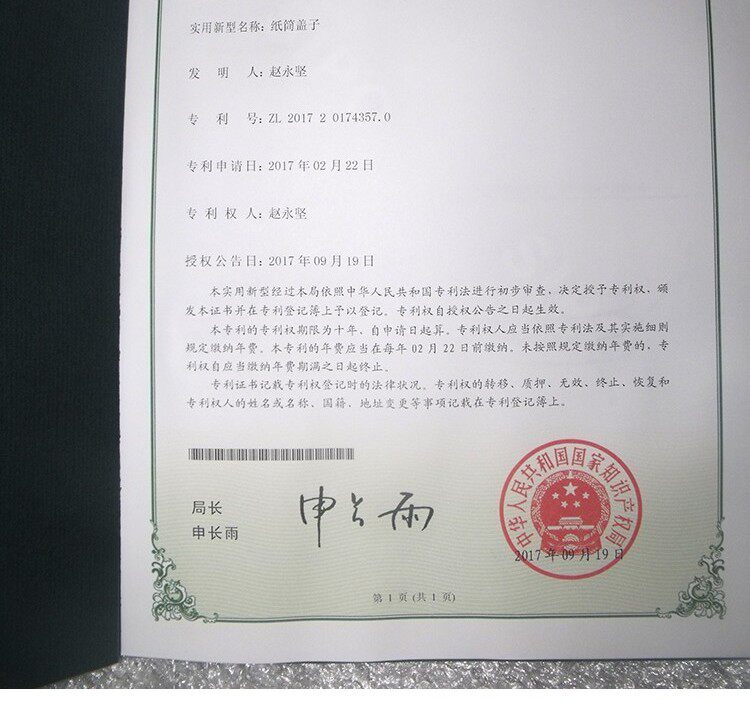 实用新型名称：纸筒盖子
发 明 人：赵永坚
专 利 号：ZL 2017 2 0174357.0
专利申请日：2017 年 02 月 22 日
专 利 权 人：赵永坚
授权公告日：2017 年 09 月 19 日
本实用新型经过本局依照中华人民共和国专利法进行初步审查，决定授予专利权，颁
发本证书并在专利登记簿上予以登记。专利权自授权公告之日起生效。
本专利的专利权期限为十年，自申请日起算。专利权人应当依照专利法及其实施细则
规定缴纳年费。本专利的年费应当在每年 02 月 22 日前缴纳。未按照规定缴纳年费的，专
利权自应当缴纳年费期满之日起终止。
专利证书记载专利权登记时的法律状况。专利权的转移、质押、无效、终止、恢复和
专利权人的姓名或名称、国籍、地址变更等事项记载在专利登记簿上。
局长
申长雨
申长雨
中华人民共和国国家知识产权局
2017 年 09 月 19 日
第 1 页 (共 1 页)